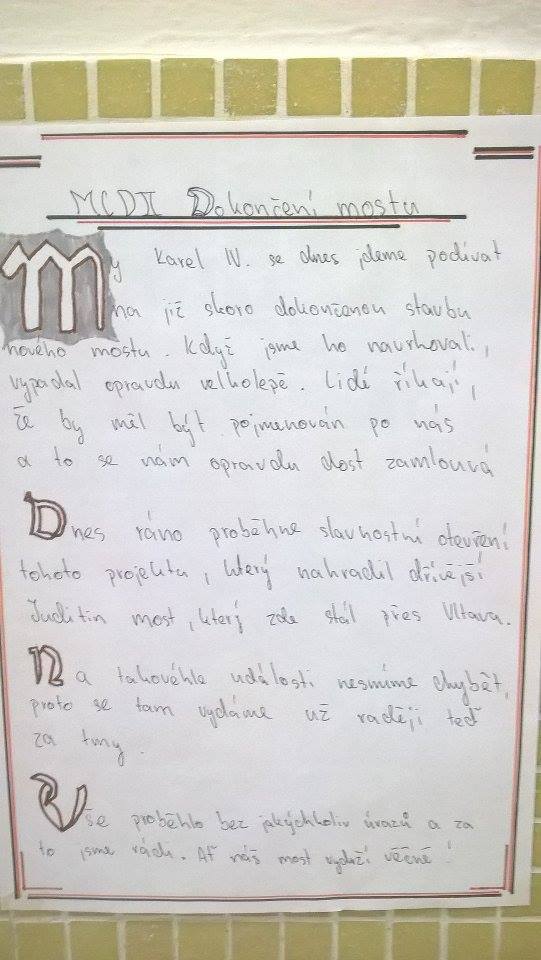 MCDII Dokončení mostu
My Karel IV. se dnes jdeme podívat
na již skoro dokončenou stavbu
nového mostu. Když jsme ho navrhovali,
vypadal opravdu velkolepě. Lidé říkají,
že by měl být pojmenován po nás
a to se nám opravdu dost zamlouvá
Dnes ráno proběhne slavnostní otevření
tohoto projektu, který nahradil dřívější
Juditin most, který zde stál přes Vltava.
Na takovéhle události nesmíme chybět,
proto se tam vydáme už raději teď
za tmy.
Vše proběhlo bez jakýchkoliv úrazů a za
to jsme rádi. Ať náš most vydrží věčně!